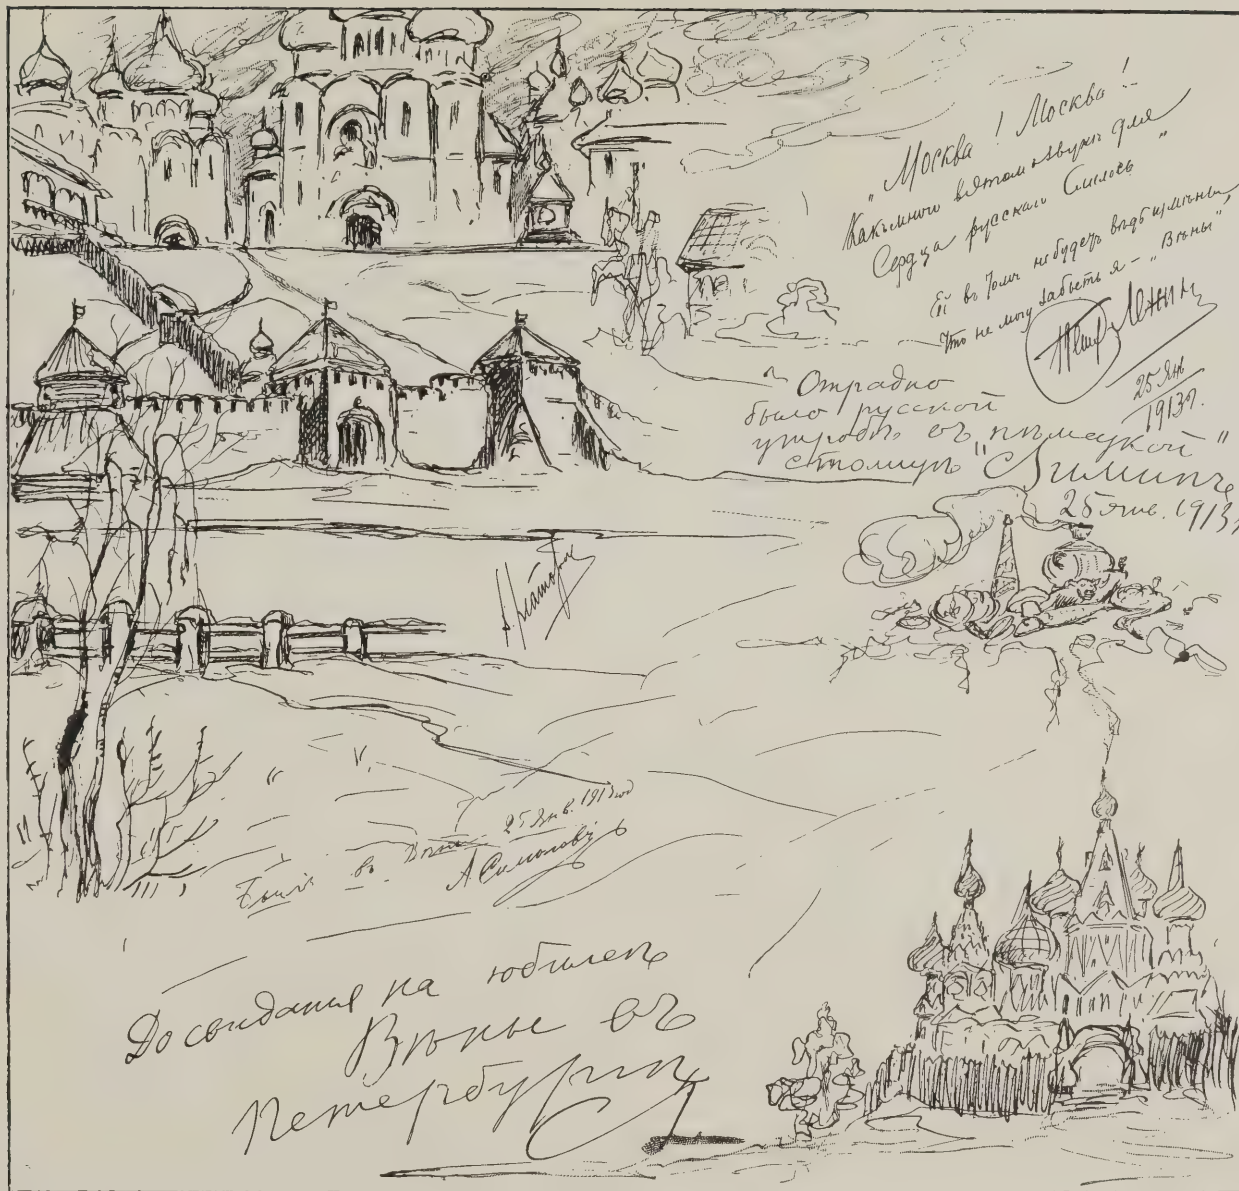 „Москва! Москва!
Какъ много въ этомъ звукѣ для
Сердца русскаго Слилось"
Ей въ томъ не будетъ
Что не могу забыть я – „Вѣны"
25 Янв
1913 г.
Отрадно
было русской
утробѣ въ нѣмецкой
столицѣ"
25 янв. 1913 г.
25 Янв. 1913 год
Былъ въ Вѣнѣ
До свиданія на юбилеѣ
Вѣны въ
Петербургѣ